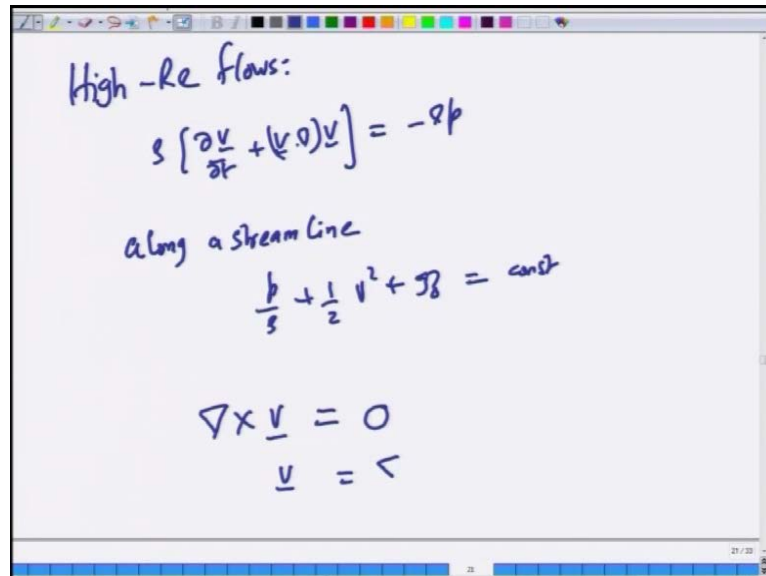 High-Re flows:
ρ [∂v/∂t + (v.∇)v] = -∇p
along a streamline
p/ρ + 1/2 v² + gz = const
∇ × v = 0
v = <
21 / 33
21